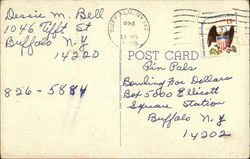 Dessie M. Bell
1046 Tifft St
Buffalo N.Y
14220
826-5884
BUFFALO, NY
POST CARD
Pin Pals
Bowling For Dollars
Box 5000 Ellicott
Square Station
Buffalo N.Y
14202